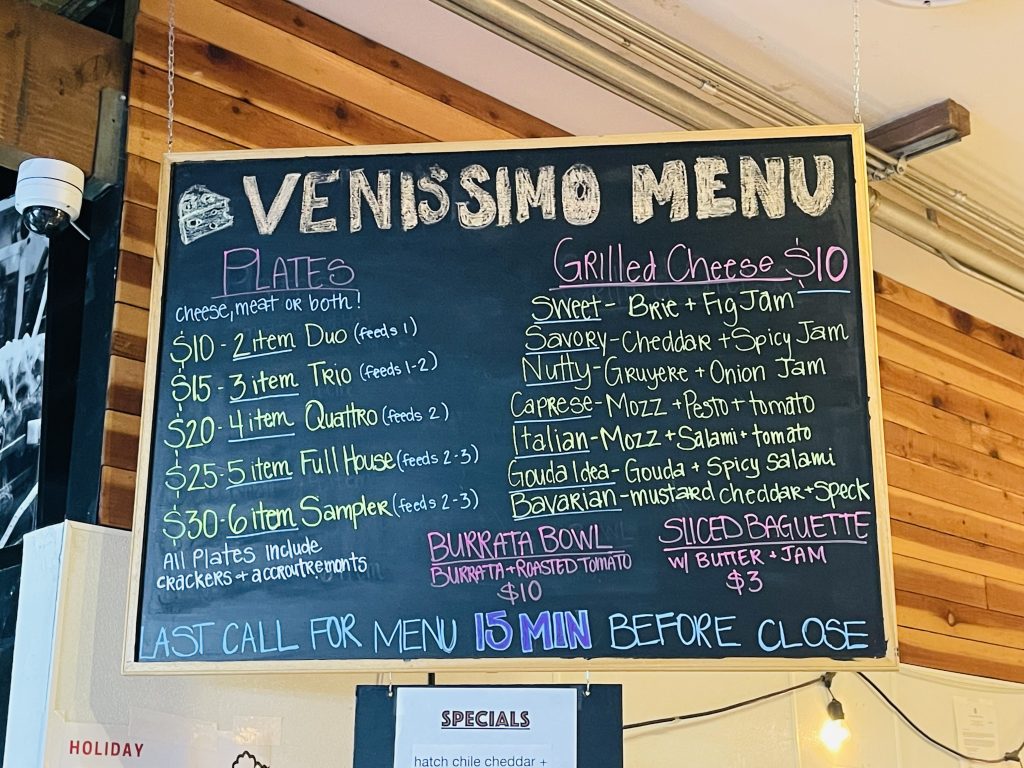 VENISSIMO MENU
PLATES
cheese, meat or both!
$10 - 2 item Duo (feeds 1)
$15 - 3 item Trio (feeds 1-2)
$20 - 4 item Quattro (feeds 2)
$25 - 5 item Full House (feeds 2-3)
$30 - 6 item Sampler (feeds 2-3)
All Plates include
crackers + accroutrements
Grilled Cheese $10
Sweet - Brie + Fig Jam
Savory - Cheddar + Spicy Jam
Nutty - Gruyere + Onion Jam
Caprese - Mozz + Pesto + tomato
Italian - Mozz + Salami + tomato
Gouda Idea - Gouda + Spicy Salami
Bavarian - mustard cheddar + Speck
BURRATA BOWL
BURRATA + ROASTED TOMATO
$10
SLICED BAGUETTE
w/ BUTTER + JAM
$3
LAST CALL FOR MENU 15 MIN BEFORE CLOSE
SPECIALS
hatch chile cheddar +
HOLIDAY